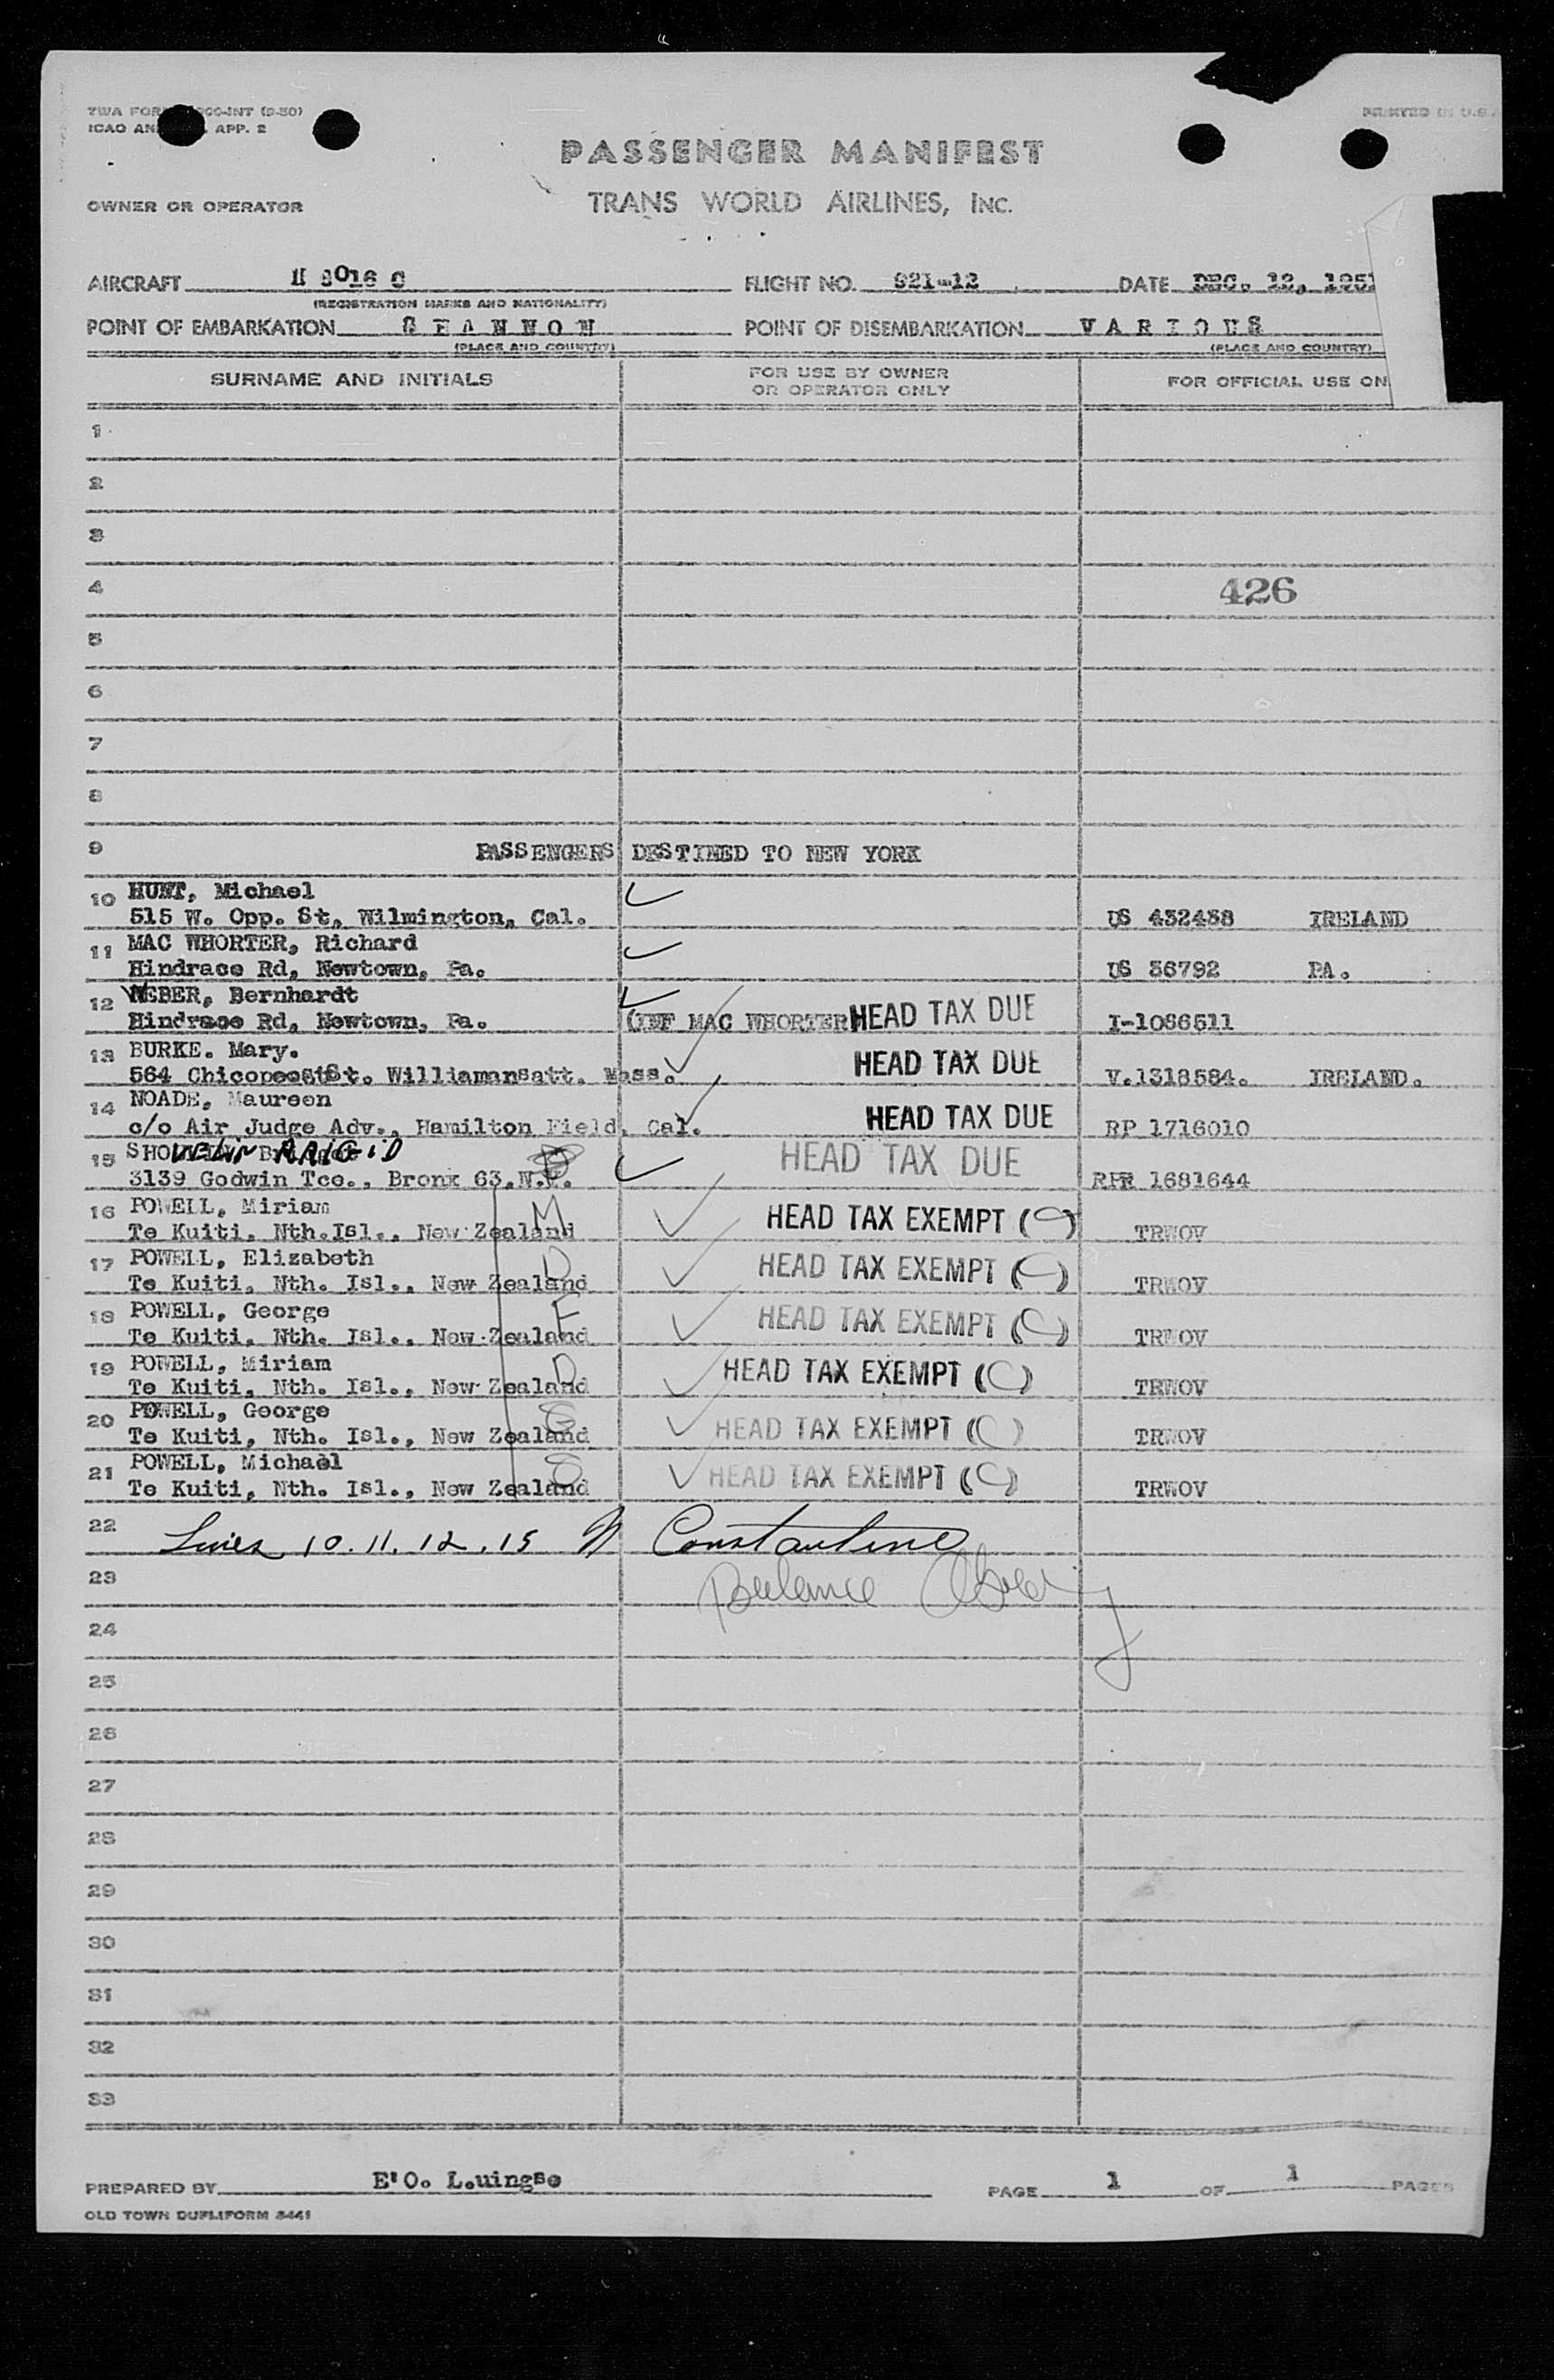 ICAO AN APP. 2
PRINTED IN U.S.A
PASSENGER MANIFEST
OWNER OR OPERATOR
TRANS WORLD AIRLINES, INC.
AIRCRAFT 8016 C FLIGHT NO. 921-12 DATE DEC. 12, 195
(REGISTRATION MARKS AND NATIONALITY)
POINT OF EMBARKATION SHANNON POINT OF DISEMBARKATION VARIOUS
(PLACE AND COUNTRY) (PLACE AND COUNTRY)
SURNAME AND INITIALS FOR USE BY OWNER OR OPERATOR ONLY FOR OFFICIAL USE ON
1
2
3
4 426
5
6
7
8
9 PASSENGERS DESTINED TO NEW YORK
10 HUNT, Michael
515 W. Opp. St, Wilmington, Cal. US 432488 IRELAND
11 MAC WHORTER, Richard
Hindrace Rd, Newtown, Pa. US 36792 PA.
12 WEBER, Bernhardt
Hindrace Rd, Newtown, Pa. (INF MAC WHORTER HEAD TAX DUE I-1086511
13 BURKE. Mary. HEAD TAX DUE
564 Chicopee St. Williamansatt. Mass. V.1318584. IRELAND.
14 NOADE, Maureen
c/o Air Judge Adv., Hamilton Field, Cal. HEAD TAX DUE RP 1716010
15 SHO BRIGID HEAD TAX DUE
3139 Godwin Tce., Bronx 63,N.Y. RPR 1681644
16 POWELL, Miriam M HEAD TAX EXEMPT (C)
Te Kuiti, Nth.Isl., New Zealand TRWOV
17 POWELL, Elizabeth D HEAD TAX EXEMPT (C)
Te Kuiti, Nth. Isl., New Zealand TRWOV
18 POWELL, George F HEAD TAX EXEMPT (C)
Te Kuiti, Nth. Isl., New Zealand TRWOV
19 POWELL, Miriam D HEAD TAX EXEMPT (C)
Te Kuiti, Nth. Isl., New Zealand TRWOV
20 POWELL, George S HEAD TAX EXEMPT (C)
Te Kuiti, Nth. Isl., New Zealand TRWOV
21 POWELL, Michael S HEAD TAX EXEMPT (C)
Te Kuiti, Nth. Isl., New Zealand TRWOV
22 Lines 10.11.12.15 N Constantine
23 Balance
24
25
26
27
28
29
30
31
32
33
PREPARED BY E'O. L.uingse PAGE 1 OF 1 PAGES
OLD TOWN DUPLIFORM 8441